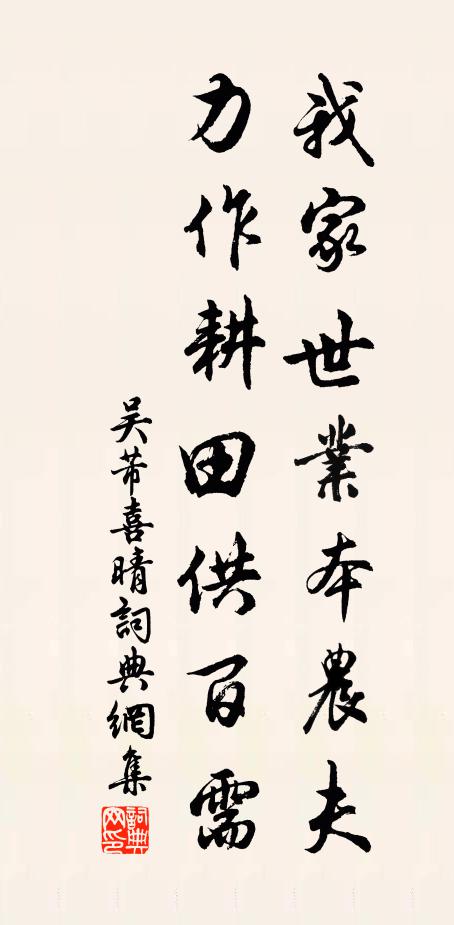 我家世業本農夫
力作耕田供百需
吴芾喜晴詞典網集
詞典网印